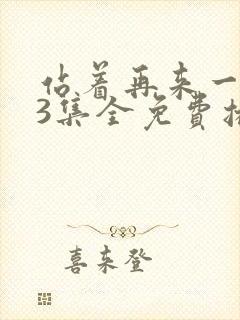 估着再来一
3集全免费播
喜来登